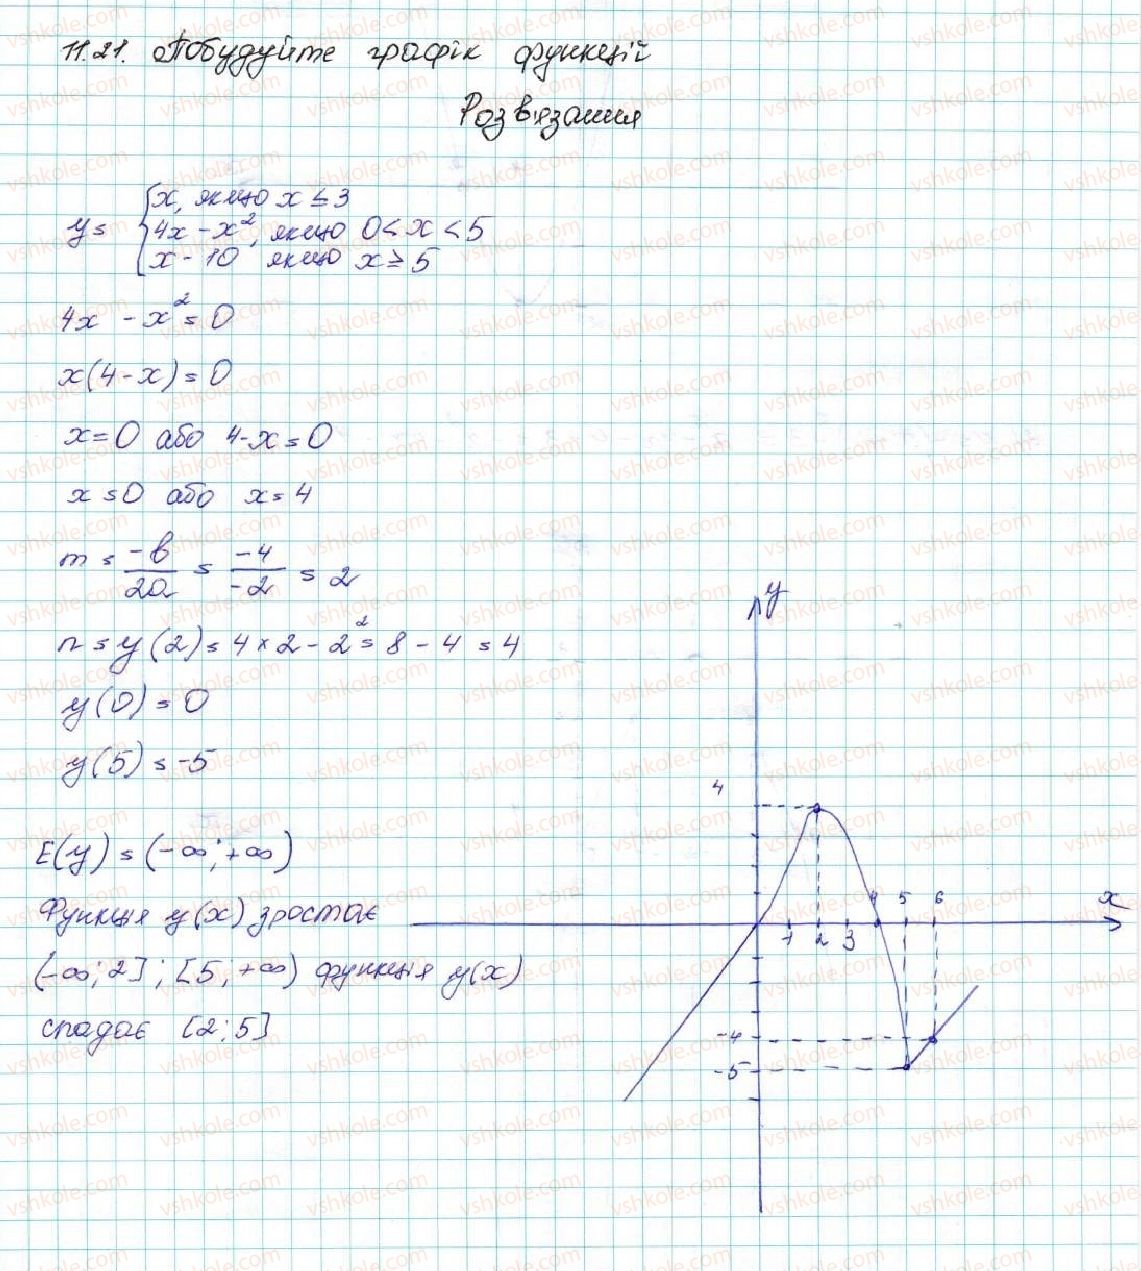 11.21. Побудуйте графік функцій
Розв'язання
y = { x, якщо x ≤ 3
4x - x², якщо 0 < x < 5
x - 10 якщо x ≥ 5
4x - x² = 0
x(4-x) = 0
x = 0 або 4-x = 0
x = 0 або x = 4
m = -b/2a = -4/-2 = 2
n = y(2) = 4 × 2 - 2² = 8 - 4 = 4
y(0) = 0
y(5) = -5
E(y) = (-∞; +∞)
Функція y(x) зростає
(-∞; 2]; [5; +∞) функція y(x)
спадає [2; 5]
y
4
x
1 2 3 4 5 6
-4
-5
vshkole.com